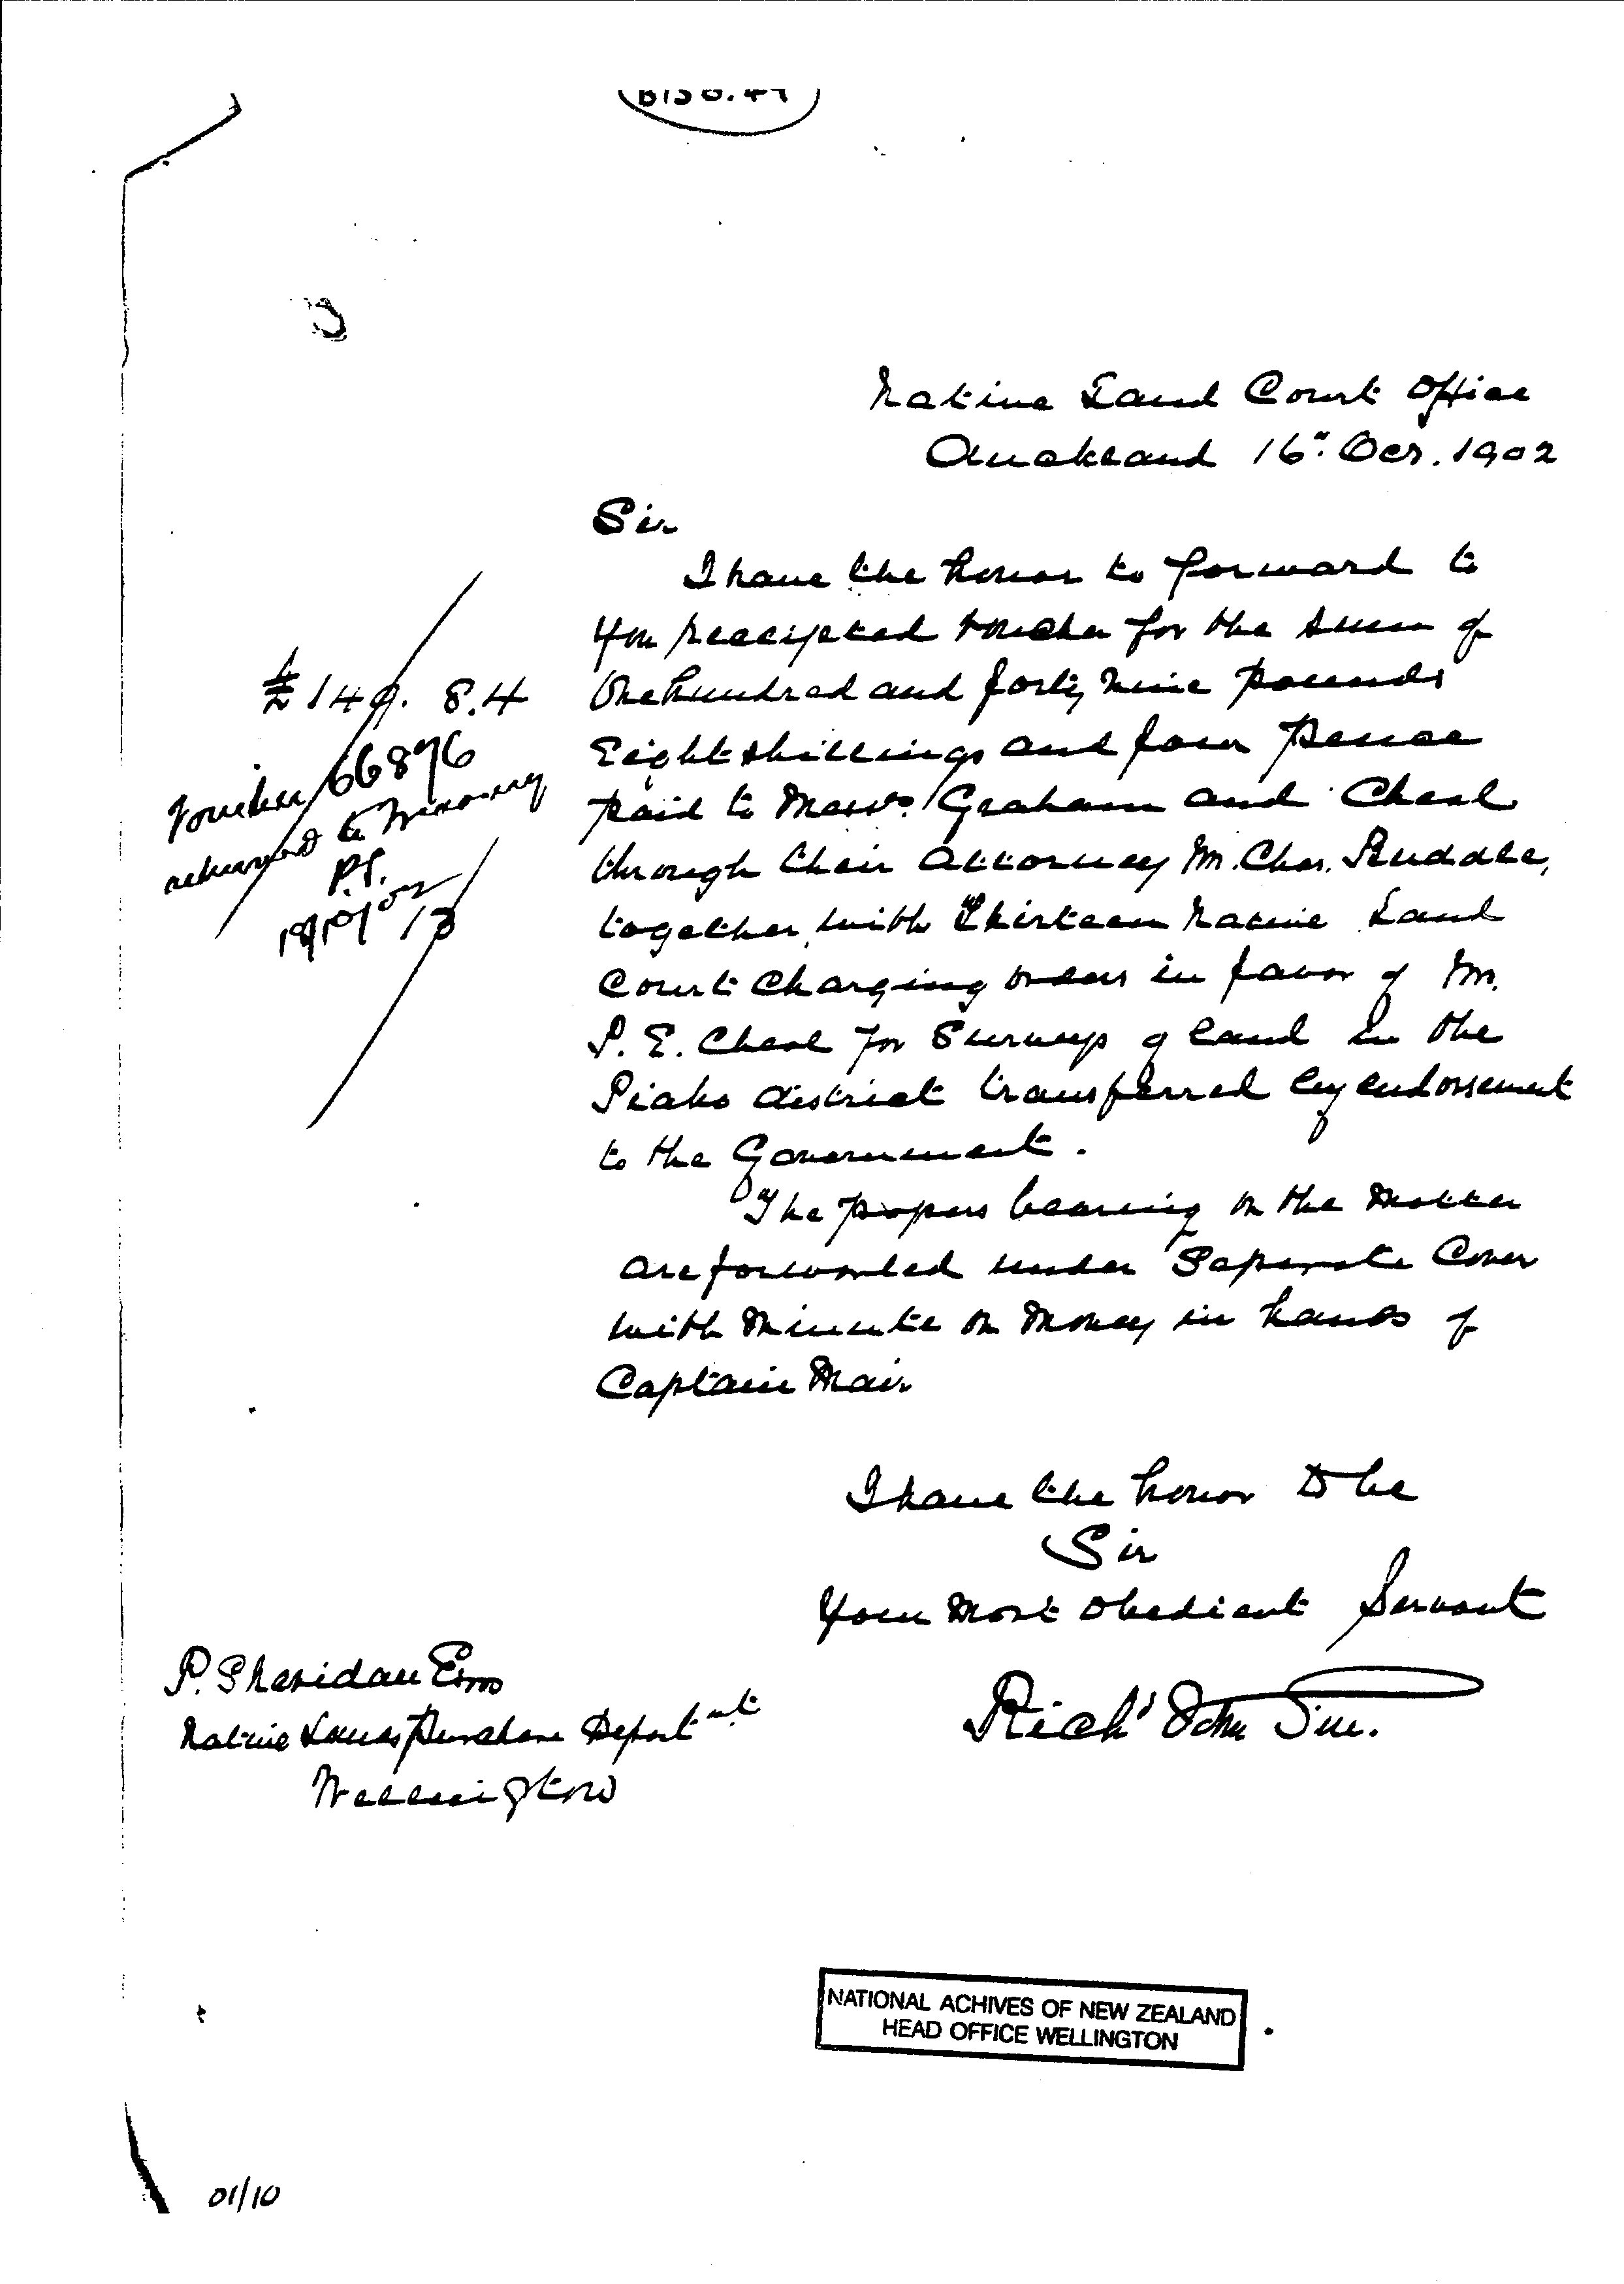 B156.49
Native Land Court Office
Auckland 16" Oct. 1902
Sir
I have the honor to forward to
you receipted voucher for the sum of
One hundred and forty nine pounds
Eight shillings and four pence
paid to Messrs. Graham and Cheal
through their Attorney Mr. Chas. Ruddle,
together with Thirteen Native Land
Court Charging orders in favor of Mr.
P. E. Cheal for Surveys of land in the
Piako district transferred by endorsement
to the Government.
The papers bearing on the matter
are forwarded under Separate Cover
with Minute on Money in hands of
Captain Mair
I have the honor to be
Sir
Your Most Obedient Servant
Richd John
£149. 8.4
Voucher 66876
returned to Treasury
P.S.
13
P. Sheridan Esqre
Native Lands Purchase Department
Wellington
NATIONAL ACHIVES OF NEW ZEALAND
HEAD OFFICE WELLINGTON
01/10